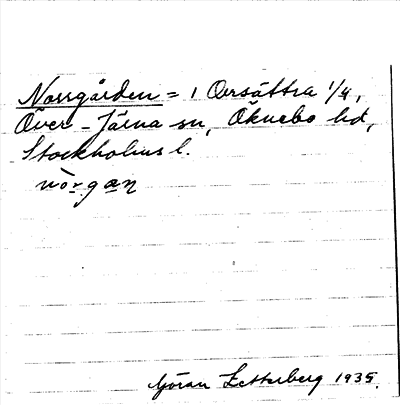 Norrgården = 1 Oversättra 1/4,
Över-Järna sn, Öknebo hd,
Stockholms l.
nò̱rgan
Göran Zetterberg 1935.